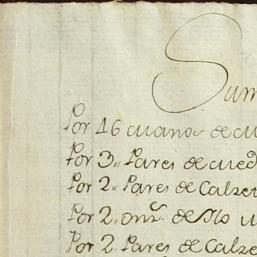 Sum
Por 16 cuanos de cu
Por 3,, Pares de cued
Por 2,, Pares de Calzet
Por 2,, onz.s de
Por 2. Pares de Calze